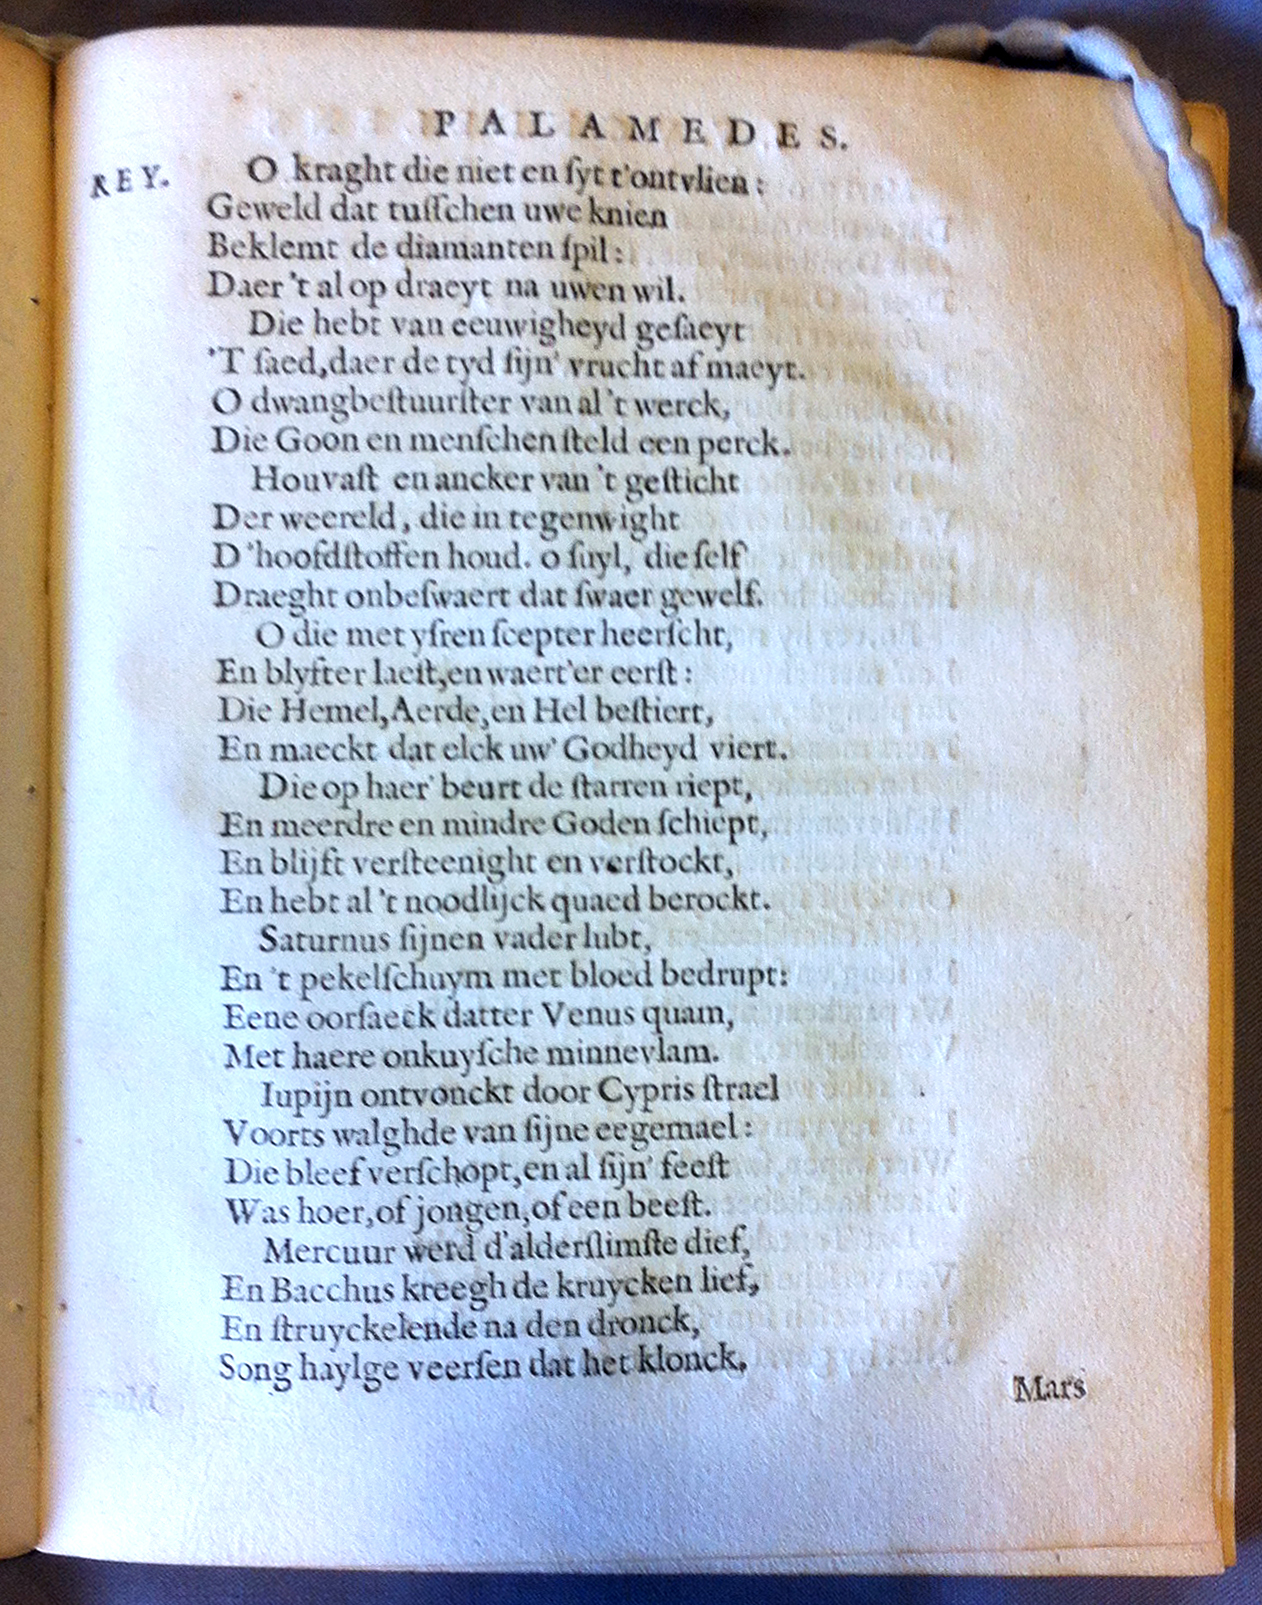 PALAMEDES.
REY. O kraght die niet en ſyt t'ontvlien:
Geweld dat tuſſchen uwe knien
Beklemt de diamanten ſpil:
Daer 't al op draeyt na uwen wil.
Die hebt van eeuwigheyd geſaeyt
'T ſaed, daer de tyd ſijn' vrucht af maeyt.
O dwangbeſtuurſter van al 't werck,
Die Goon en menſchen ſteld een perck.
Houvaſt en ancker van 't geſticht
Der weereld, die in tegenwight
D'hoofdſtoffen houd. o ſuyl, die ſelf
Draeght onbeſwaert dat ſwaer gewelf.
O die met yſren ſcepter heerſcht,
En blyfter laeſt, en waert'er eerſt:
Die Hemel, Aerde, en Hel beſtiert,
En maeckt dat elck uw' Godheyd viert.
Die op haer' beurt de ſtarren riept,
En meerdre en mindre Goden ſchiept,
En blijft verſteenight en verſtockt,
En hebt al 't noodlijck quaed berockt.
Saturnus ſijnen vader lubt,
En 't pekelſchuym met bloed bedrupt:
Eene oorſaeck datter Venus quam,
Met haere onkuyſche minnevlam.
Iupijn ontvonckt door Cypris ſtrael
Voorts walghde van ſijne eegemael:
Die bleef verſchopt, en al ſijn' feeſt
Was hoer, of jongen, of een beeſt.
Mercuur werd d'alderſlimſte dief,
En Bacchus kreegh de kruycken lief,
En ſtruyckelende na den dronck,
Song haylge veerſen dat het klonck.
Mars